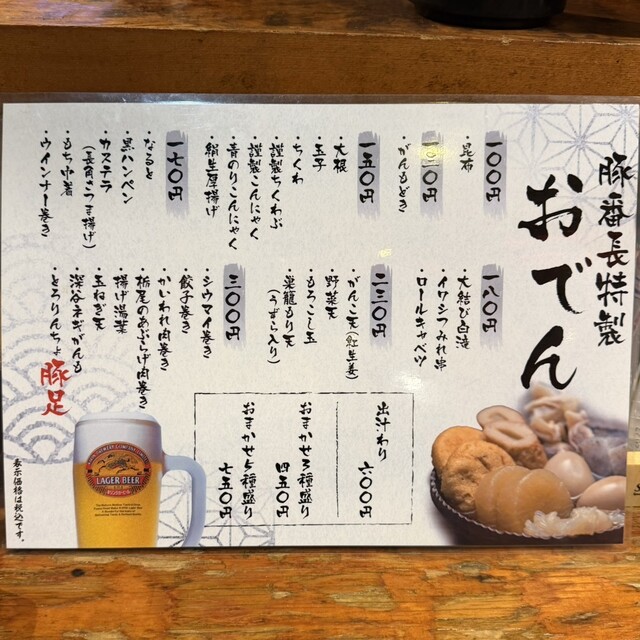 豚番長特製
おでん
一〇〇円
・昆布
・がんもどき
一五〇円
・大根
・玉子
・ちくわ
・謹製ちくわぶ
・謹製こんにゃく
・青のりこんにゃく
・絹生厚揚げ
一七〇円
・なると
・黒ハンペン
・カステラ
（長角さつま揚げ）
・もち巾着
・ウインナー巻き
一八〇円
・大結び白滝
・イワシつみれ串
・ロールキャベツ
二三〇円
・がんこ天（紅生姜）
・野菜天
・もろこし天
・巣籠もり天
（うずら入り）
三〇〇円
・シウマイ巻き
・餃子巻き
・かいわれ肉巻き
・栃尾のあぶらげ肉巻き
・揚げ湯葉
・玉ねぎ天
・深谷ネギがんも
・とろりんちょ
豚足
出汁わり
六〇〇円
おまかせ3種盛り
四五〇円
おまかせ5種盛り
七五〇円
LAGER BEER
表示価格は税込です。